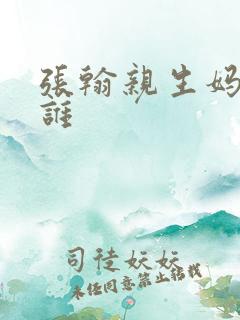 張翰親生妈
誰
司徒妖妖
未经同意禁止转载